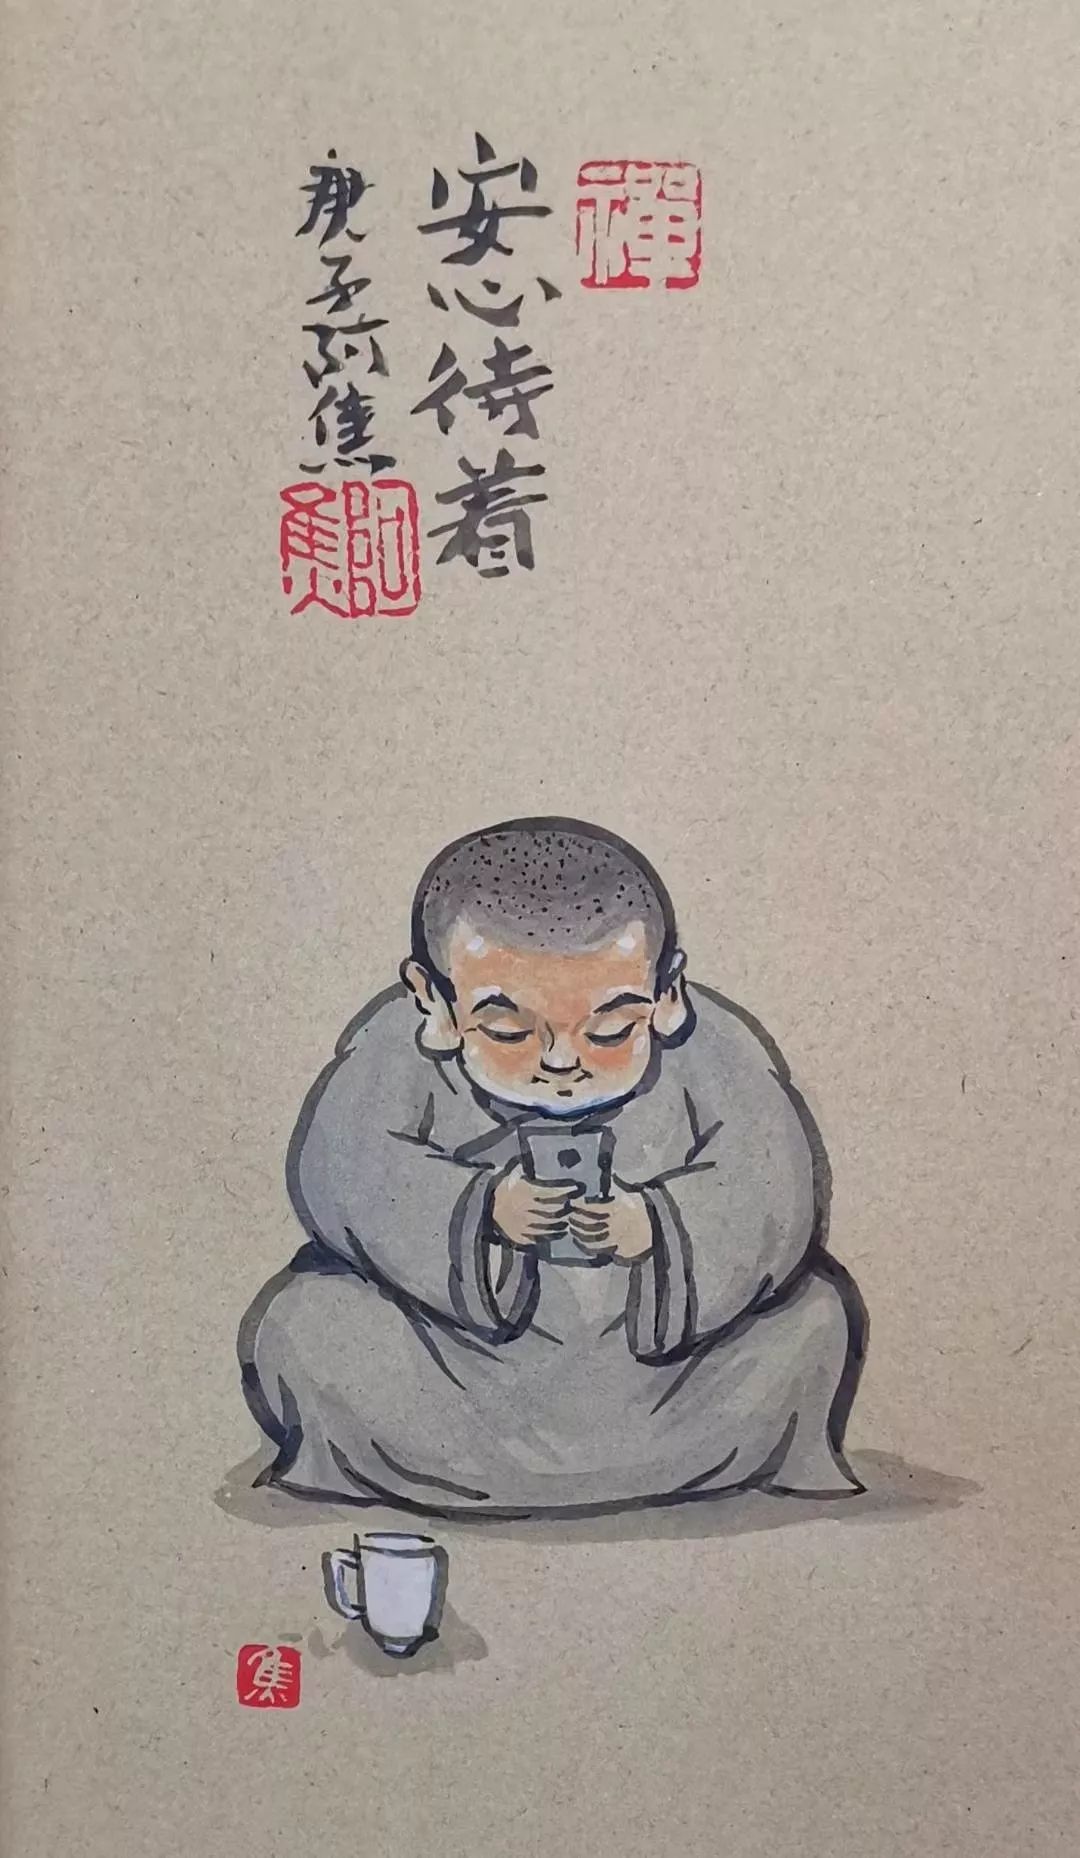 禪
安心待着
庚子阿焦
阿焦
焦